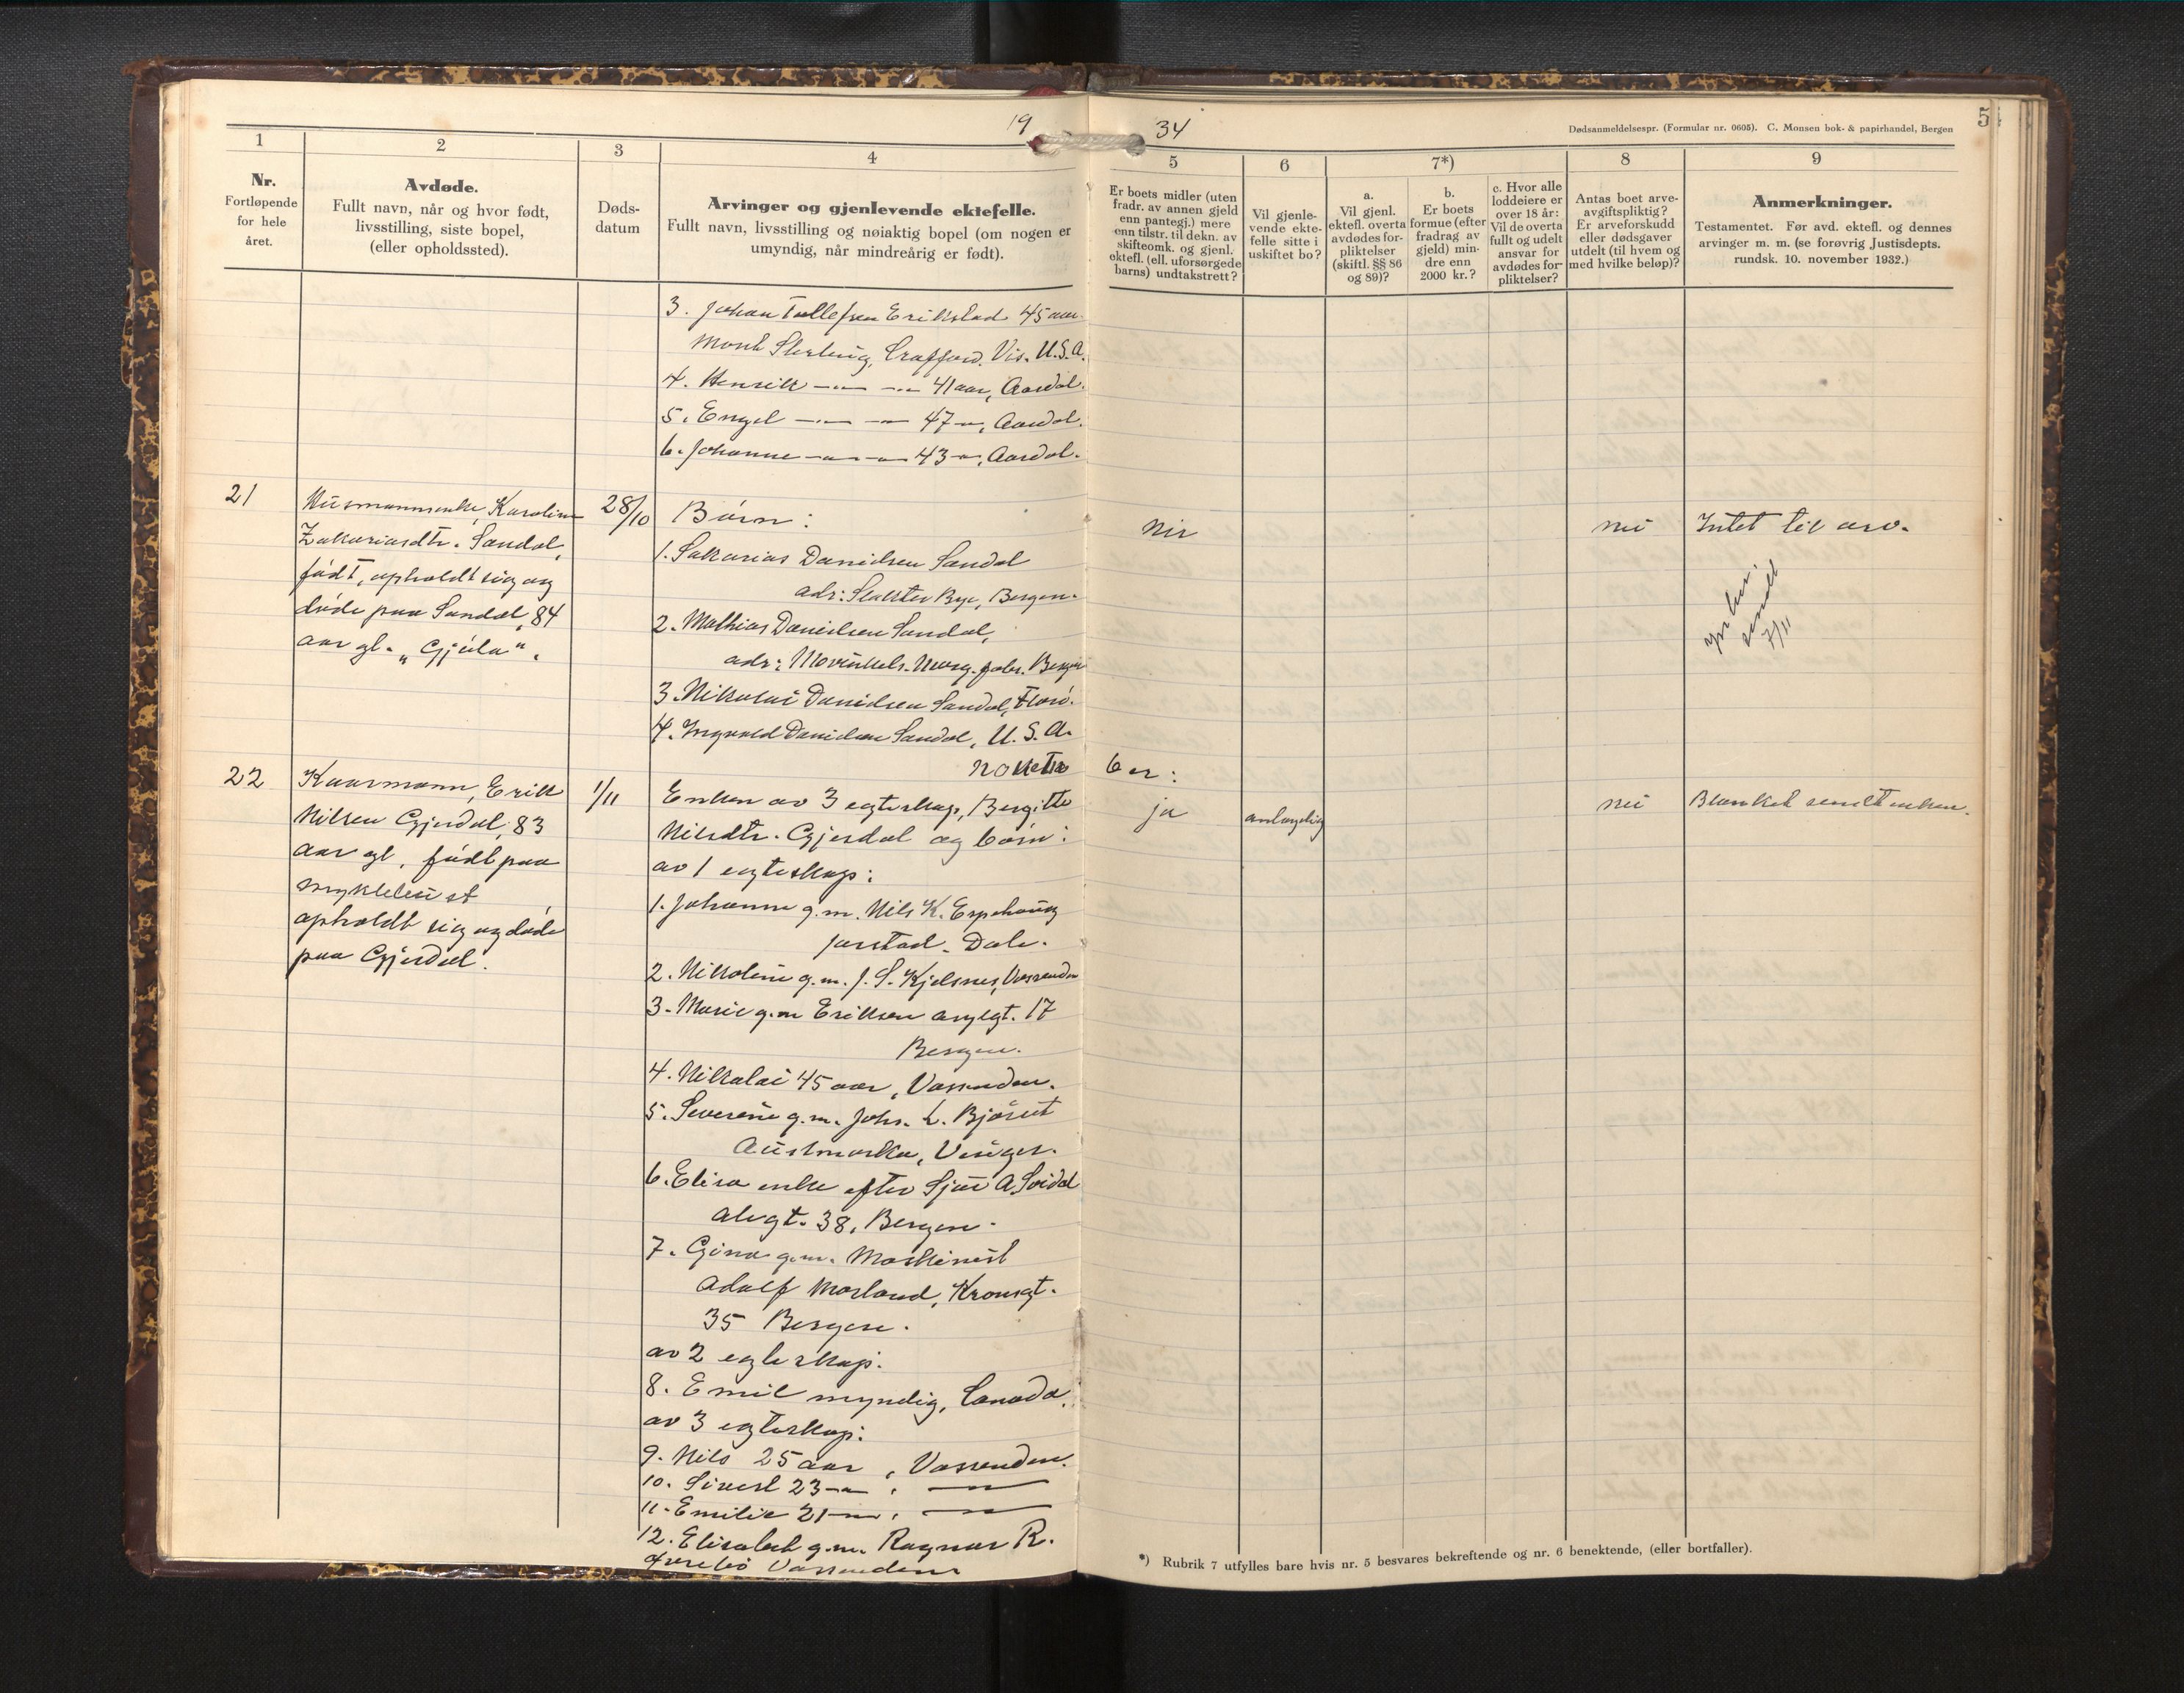 19 34
Dødsanmeldelsespr. (Formular nr. 0605). C. Monsen bok- & papirhandel, Bergen
5
1
Nr.
Fortløpende
for hele
året.
2
Avdøde.
Fullt navn, når og hvor født,
livsstilling, siste bopel,
(eller opholdssted).
3
Døds-
datum
4
Arvinger og gjenlevende ektefelle.
Fullt navn, livsstilling og nøiaktig bopel (om nogen er
umyndig, når mindreårig er født).
5
Er boets midler (uten
fradr. av annen gjeld
enn pantegj.) mere
enn tilstr. til dekn. av
skifteomk. og gjenl.
ektefl. (ell. uforsørgede
barns) undtakstrett?
6
Vil gjenle-
vende ekte-
felle sitte i
uskiftet bo?
7*)
a.
Vil gjenl.
ektefl. overta
avdødes for-
pliktelser
(skiftl. §§ 86
og 89)?
b.
Er boets
formue (efter
fradrag av
gjeld) min-
dre enn
2000 kr.?
c. Hvor alle
loddeiere er
over 18 år:
Vil de overta
fullt og udelt
ansvar for
avdødes for-
pliktelser?
8
Antas boet arve-
avgiftspliktig?
Er arveforskudd
eller dødsgaver
utdelt (til hvem og
med hvilke beløp)?
9
Anmerkninger.
Testamentet. Før avd. ektefl. og dennes
arvinger m. m. (se forøvrig Justisdepts.
rundsk. 10. november 1932.)
3. Johan Tollefsen Erikstad 45 aar.
Mont Sterling, Crafford. Vis. U.S.A.
4. Henrik —"— —"— 41 aar, Aardal.
5. Engel —"— —"— 47 —"—, Aardal.
6. Johanne —"— —"— 43 —"—, Aardal.
21
Husmannsenke, Karoline
Zakariasdtr. Sandal,
født, opholdt sig og
døde paa Sandal, 84
aar gl. „Gjøla".
28/10
Børn:
1. Sakarias Danielsen Sandal
adr: Slakter Bye, Bergen.
2. Mathias Danielsen Sandal,
adr: Mowinkels. Marg. fabr. Bergen
3. Nikolai Danielsen Sandal, Florø.
4. Ingvald Danielsen Sandal, U.S.A.
Nei
nei
Intet til arv.
sendt
7/11
November:
22
Kaarmann, Erik
Nilsen Gjesdal, 83
aar gl, født paa
Myklebust
opholdt sig og døde
paa Gjesdal.
1/11
Enken av 3 egteskap, Bergitte
Nilsdtr. Gjesdal og børn:
av 1 egteskap:
1. Johanne g.m. Nils K. Espehaug
Jarstad. Dale.
2. Nikoline g.m. J. S. Kjelsnes, Vassenden
3. Marie g.m Eriksen asylgt. 17
Bergen.
4. Nikolai 45 aar, Vassenden.
5. Severine g.m. Johs. L. Bjåsut
Austmarka, Vinger.
6. Elisa enke efter Sjur A. Soidal
alvgt. 38, Bergen.
7. Gina g.m. Maskinist
Adolf Morland, Kronsgt.
35 Bergen.
av 2 egteskap:
8. Emil myndig, Canada.
av 3 egteskap:
9. Nils 25 aar, Vassenden.
10. Sivert 23 —"—, —"—
11. Emilie 21 —"—, —"—
12. Elisabeth g.m. Ragnar R.
Øvrebø Vassenden
ja
nei
Blanket sendt enken.
*) Rubrik 7 utfylles bare hvis nr. 5 besvares bekreftende og nr. 6 benektende, (eller bortfaller).